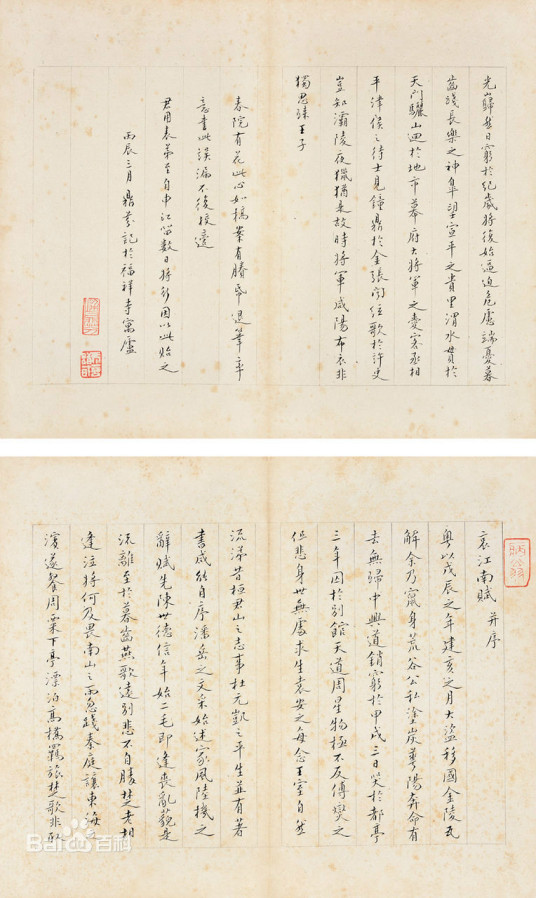 光巋然日窮於紀歲將復始逼迫危慮端憂暮
齒踐長樂之神皋望宣平之貴里渭水貫於
天門驪山迴於地市幕府大將軍之愛客丞相
平津侯之待士見鐘鼎於金張聞絃歌於許史
豈知灞陵夜獵猶是故時將軍咸陽布衣非
獨思歸王子
春院有花此心如槁案有賸帋退筆率
意書此誤漏不復校邊
君用表弟至自申江留數日將行因以此貽之
丙辰三月鼎芬記於福祥寺寓廬
哀江南賦 并序
粤以戊辰之年建亥之月大盜移國金陵瓦
解余乃竄身荒谷公私塗炭華陽奔命有
去無歸中興道銷窮於甲戌三日哭於都亭
三年囚於別館天道周星物極不反傅燮之
但悲身世無處求生袁安之每念王室自然
流涕昔桓君山之志事杜元凱之平生並有著
書咸能自序潘岳之文采始述家風陸機之
辭賦先陳世德信年始二毛即逢喪亂藐是
流離至於暮齒燕歌遠別悲不自勝楚老相
逢泣將何及畏南山之雨忽踐秦庭讓東海之
濱遂餐周粟下亭漂泊高橋羈旅楚歌非取
Bai百科